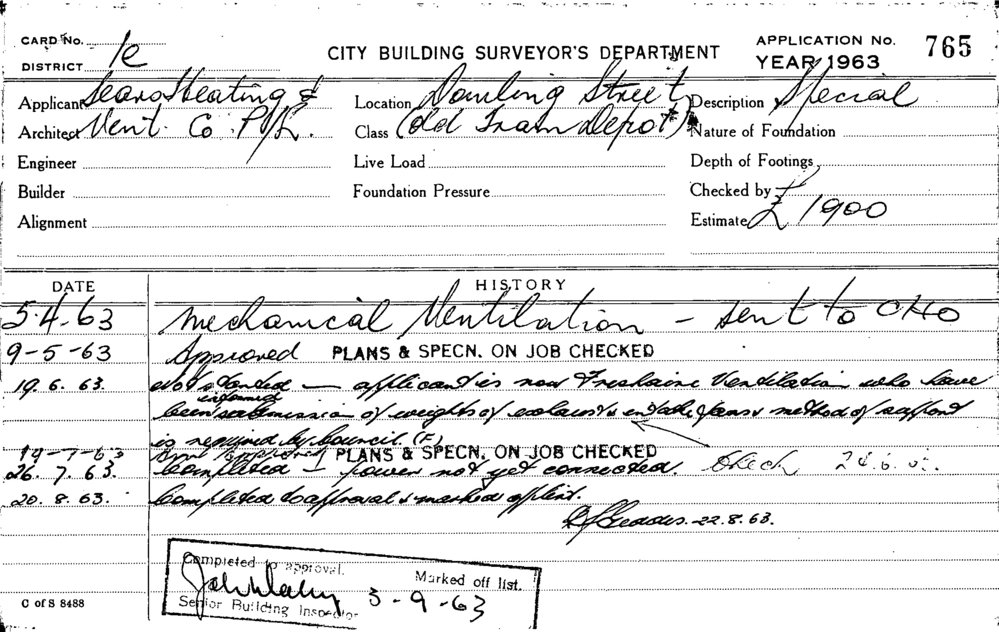 CARD No.
DISTRICT
CITY BUILDING SURVEYOR'S DEPARTMENT
APPLICATION No. 765
YEAR 1963
Applicant Sears Heating &
Architect Vent. Co. P/L.
Engineer
Builder
Alignment
Location Dowling Street
Class (Old Tram Depot)
Live Load
Foundation Pressure
Description Special
Nature of Foundation
Depth of Footings
Checked by
Estimate £1900
DATE HISTORY
5.4.63 Mechanical Ventilation – sent to CHO
9-5-63 Approved PLANS & SPECN. ON JOB CHECKED
19.6.63. Not started – applicant is now Freshaire Ventilation who have
informed
been submission of weights of exhaust & intake fans & method of support
is required by Council. (F)
19-7-63 PLANS & SPECN. ON JOB CHECKED
26.7.63. Completed – power not yet connected. Check
20.8.63. Completed to approval & marked off list.
22.8.63.
Completed to approval.
Marked off list.
3-9-63
Senior Building Inspector
C of S 8488